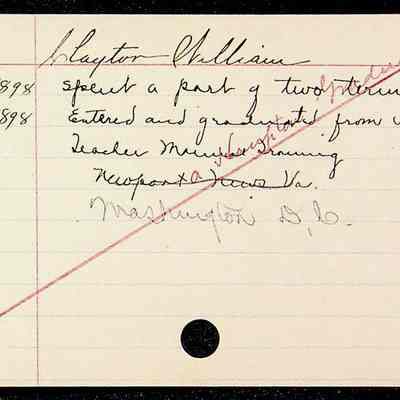 Clayton William
1898 Spent a part of two term
1898 Entered and graduated from
Teacher Manual Training
Newport News Va.
Washington D.C.
a Hampton Graduate